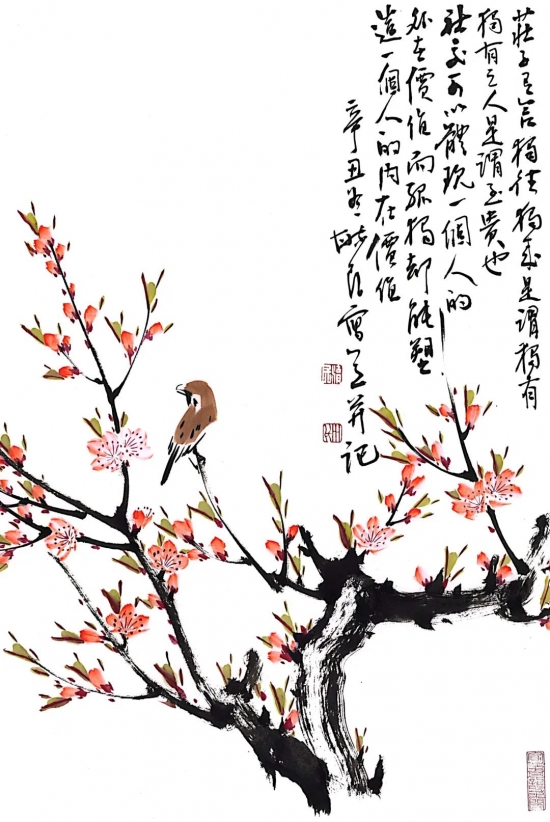 莊子有言獨往獨來是謂獨有
獨有之人是謂至貴也
社交可以體現一個人的
外在價值而孤獨卻能塑
造一個人的內在價值
辛丑冬 寫之并記